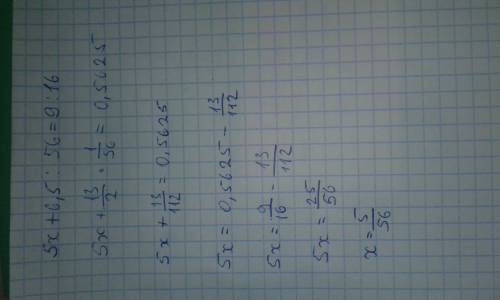 5x+6,5:56=9:16
5x+13/2·1/56=0,5625
5x+13/112=0,5625
5x=0,5625-13/112
5x=9/16-13/112
5x=25/56
x=5/56